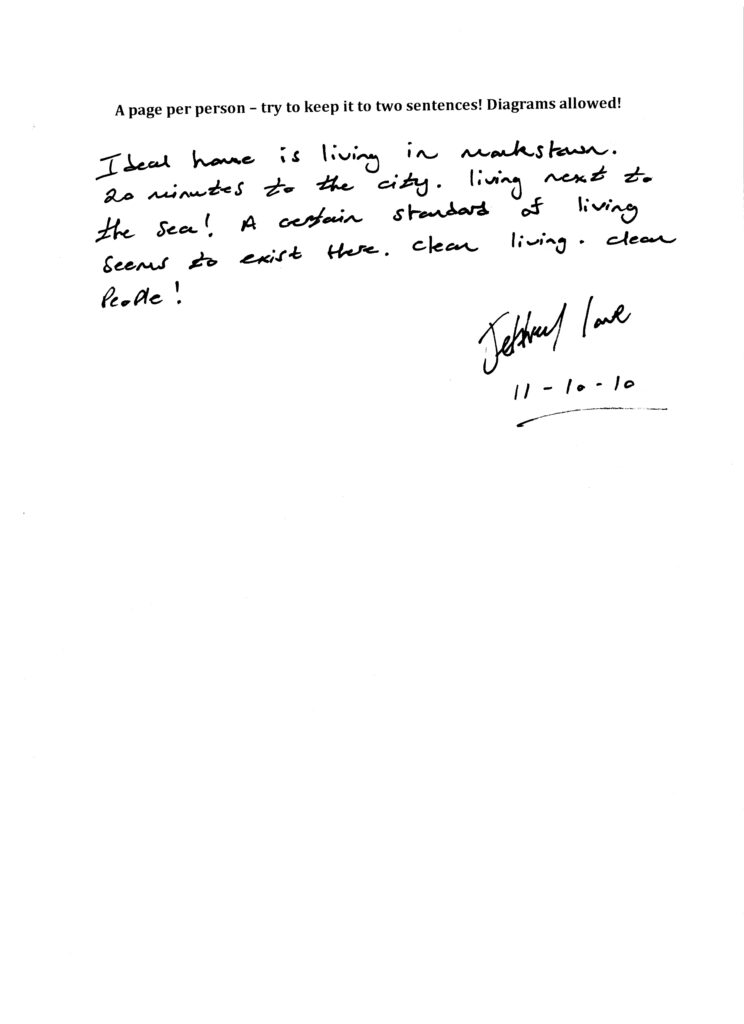 A page per person – try to keep it to two sentences! Diagrams allowed!
Ideal home is living in monkstown.
20 minutes to the city. living next to
the sea! A certain standard of living
seems to exist there. clean living. clean
People!
11-10-10